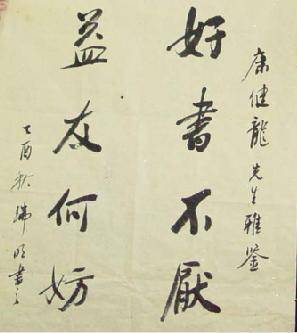 康健龍先生雅鑒
好書不厭
益友何妨
乙酉秋 瑞明書之